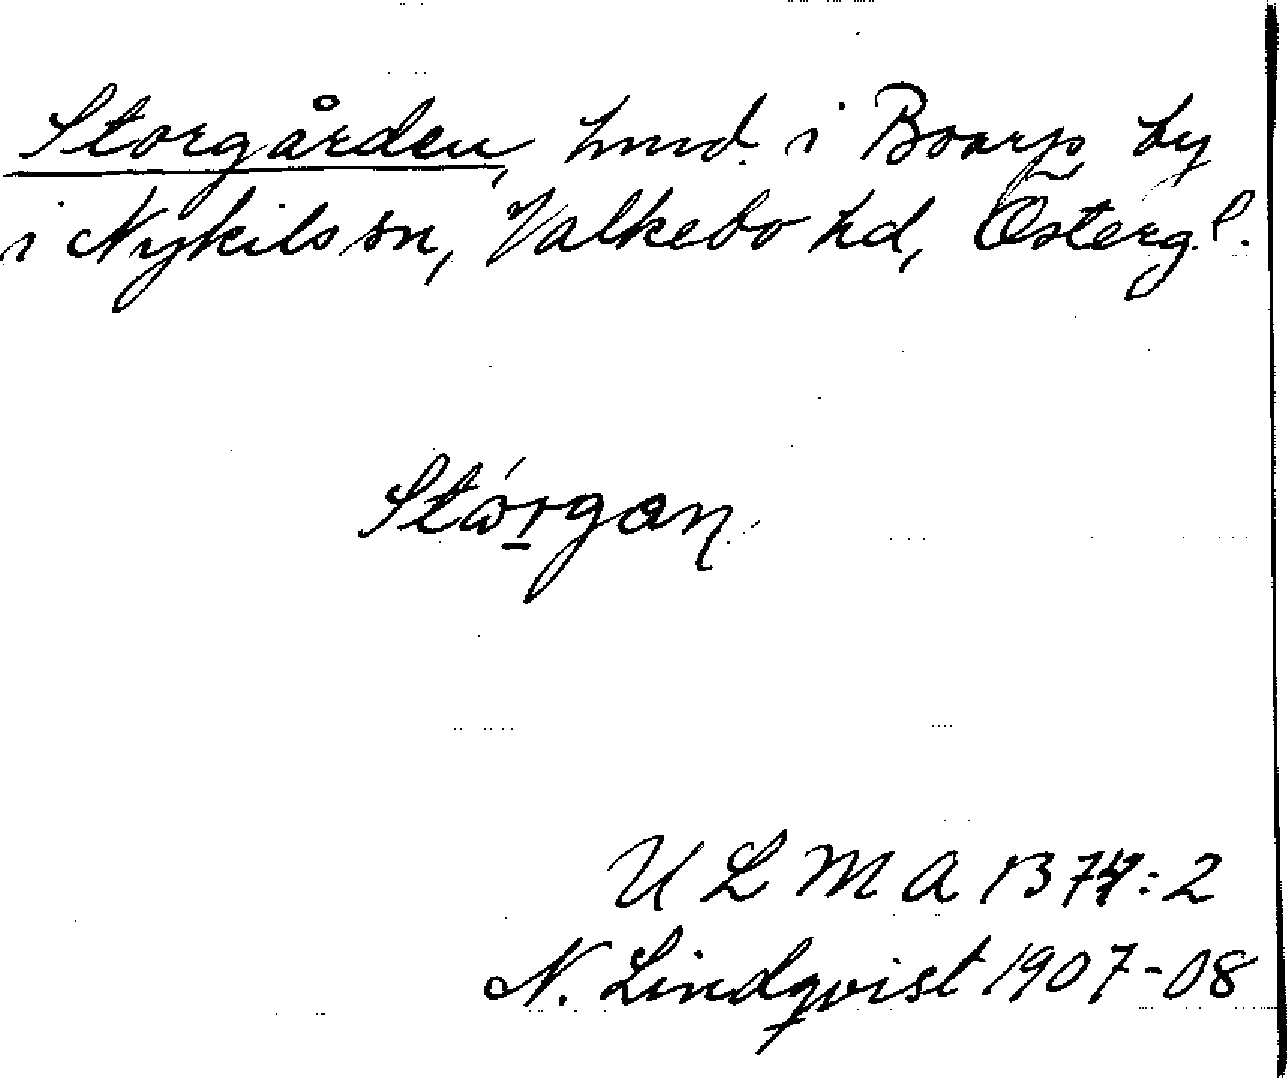 Storgården, hmd. i Boarp by
i Nykils sn, Valkebo hd, Österg.l.
Stórgan
U L M A 1374:2
N. Lindqvist 1907-08